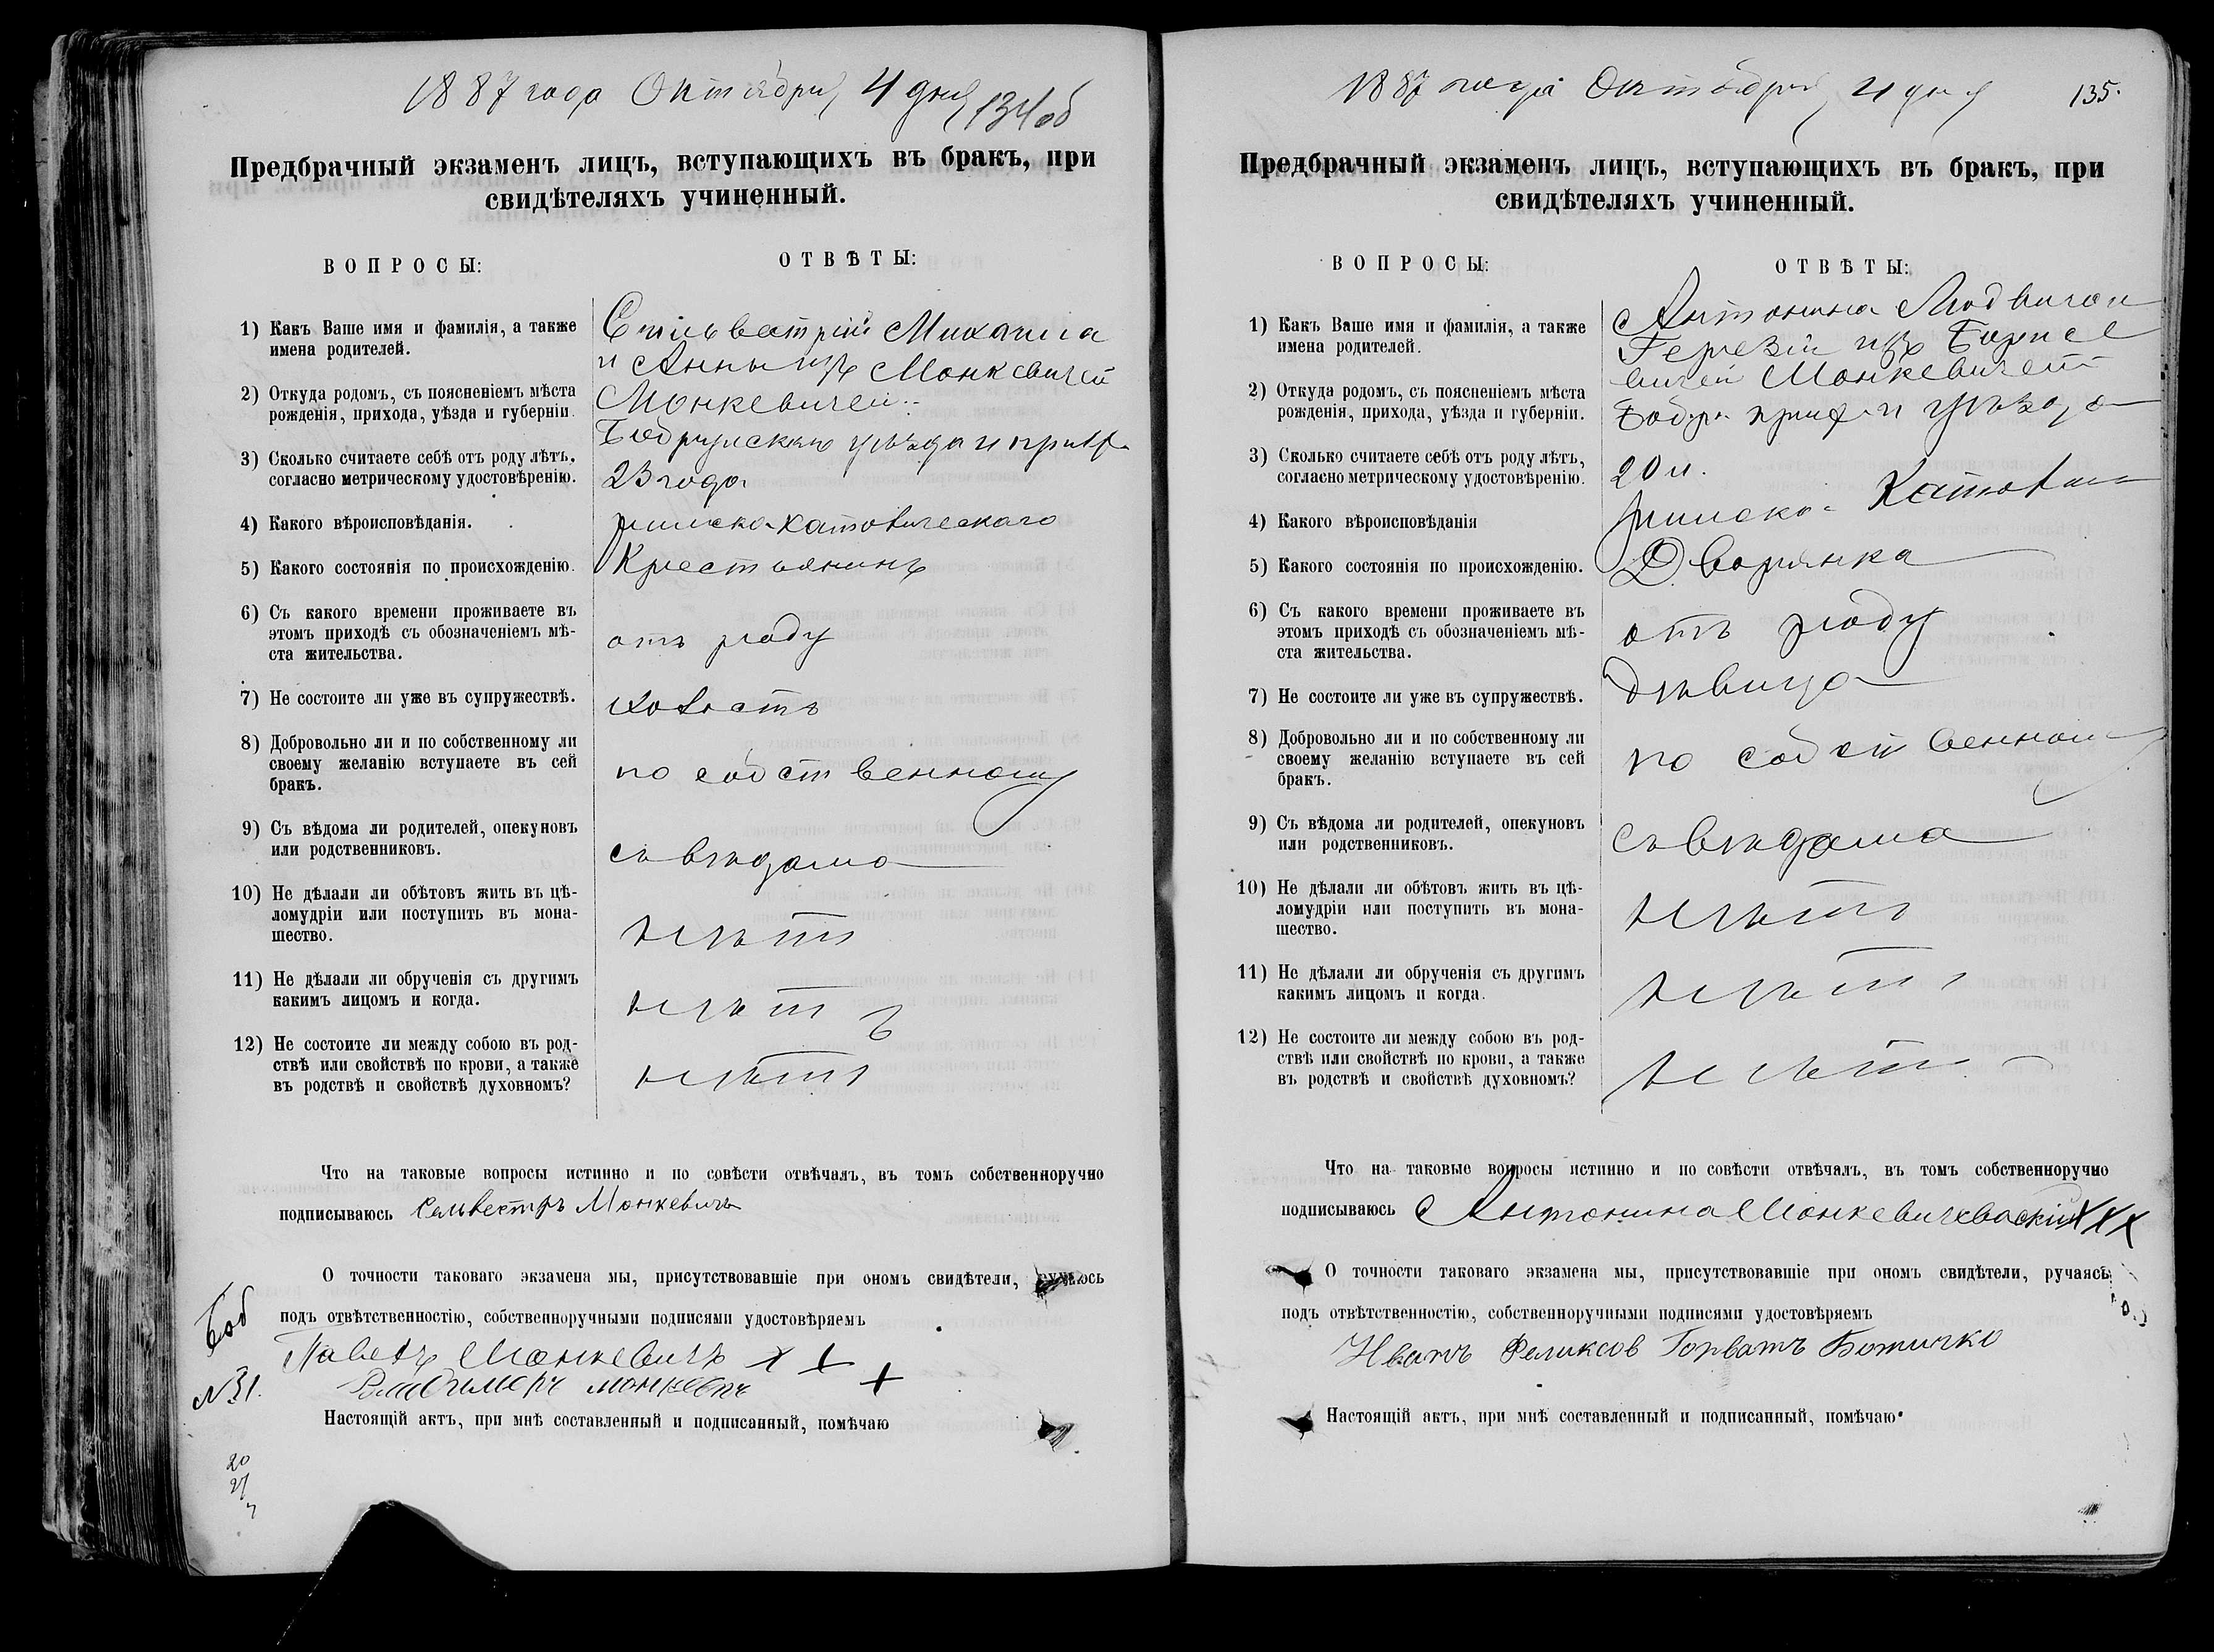 1887 года Октября 4 дня 134 об
Предбрачный экзаменъ лицъ, вступающихъ въ бракъ, при
свидѣтеляхъ учиненный.
ВОПРОСЫ:
ОТВѢТЫ:
1) Какъ Ваше имя и фамилія, а также
имена родителей.
Сильвестрій Михаила
и Анны изъ Монкевичей
Монкевичей
2) Откуда родомъ, съ поясненіемъ мѣста
рожденія, прихода, уѣзда и губерніи.
Бобруйскаго уѣзда и прих
3) Сколько считаете себѣ отъ роду лѣтъ,
согласно метрическому удостовѣренію.
23 года
4) Какого вѣроисповѣданія.
римско-католическаго
5) Какого состоянія по происхожденію.
Крестьянинъ
6) Съ какого времени проживаете въ
этомъ приходѣ съ обозначеніемъ мѣ-
ста жительства.
отъ роду
7) Не состоите ли уже въ супружествѣ.
холостъ
8) Добровольно ли и по собственному ли
своему желанію вступаете въ сей
бракъ.
по собственному
9) Съ вѣдома ли родителей, опекуновъ
или родственниковъ.
съ вѣдома
10) Не дѣлали ли обѣтовъ жить въ цѣ-
ломудріи или поступить въ мона-
шество.
нѣтъ
11) Не дѣлали ли обрученія съ другимъ
какимъ лицомъ и когда.
нѣтъ
12) Не состоите ли между собою въ род-
ствѣ или свойствѣ по крови, а также
въ родствѣ и свойствѣ духовномъ?
нѣтъ
Что на таковые вопросы истинно и по совѣсти отвѣчалъ, въ томъ собственноручно
подписываюсь Сельвестръ Монкевичъ
О точности таковаго экзамена мы, присутствовавшіе при ономъ свидѣтели, ручаюсь
подъ отвѣтственностію, собственноручными подписями удостовѣряемъ
Павелъ Монкевичъ X X X
Владимеръ монкевичъ
Боб
№ 31.
Настоящій актъ, при мнѣ составленный и подписанный, помѣчаю
20
21
1887 года Октября 4 дня 135.
Предбрачный экзаменъ лицъ, вступающихъ въ бракъ, при
свидѣтеляхъ учиненный.
ВОПРОСЫ:
ОТВѢТЫ:
1) Какъ Ваше имя и фамилія, а также
имена родителей.
Антонина Людвига и
Терезіи изъ Борисе
вичей Монкевичей
2) Откуда родомъ, съ поясненіемъ мѣста
рожденія, прихода, уѣзда и губерніи.
Бобр. прих. и уѣзда
3) Сколько считаете себѣ отъ роду лѣтъ,
согласно метрическому удостовѣренію.
20 л.
4) Какого вѣроисповѣданія
римско-Катол
5) Какого состоянія по происхожденію.
Дворянка
6) Съ какого времени проживаете въ
этомъ приходѣ съ обозначеніемъ мѣ-
ста жительства.
отъ роду
7) Не состоите ли уже въ супружествѣ.
дѣвица
8) Добровольно ли и по собственному ли
своему желанію вступаете въ сей
бракъ.
по собственному
9) Съ вѣдома ли родителей, опекуновъ
или родственниковъ.
съ вѣдома
10) Не дѣлали ли обѣтовъ жить въ цѣ-
ломудріи или поступить въ мона-
шество.
нѣтъ
11) Не дѣлали ли обрученія съ другимъ
какимъ лицомъ и когда.
нѣтъ
12) Не состоите ли между собою въ род-
ствѣ или свойствѣ по крови, а также
въ родствѣ и свойствѣ духовномъ?
нѣтъ
Что на таковые вопросы истинно и по совѣсти отвѣчалъ, въ томъ собственноручно
подписываюсь Антонина XXX
О точности таковаго экзамена мы, присутствовавшіе при ономъ свидѣтели, ручаясь
подъ отвѣтственностію, собственноручными подписями удостовѣряемъ
Иванъ Феликсов Горватъ Божичко
Настоящій актъ, при мнѣ составленный и подписанный, помѣчаю